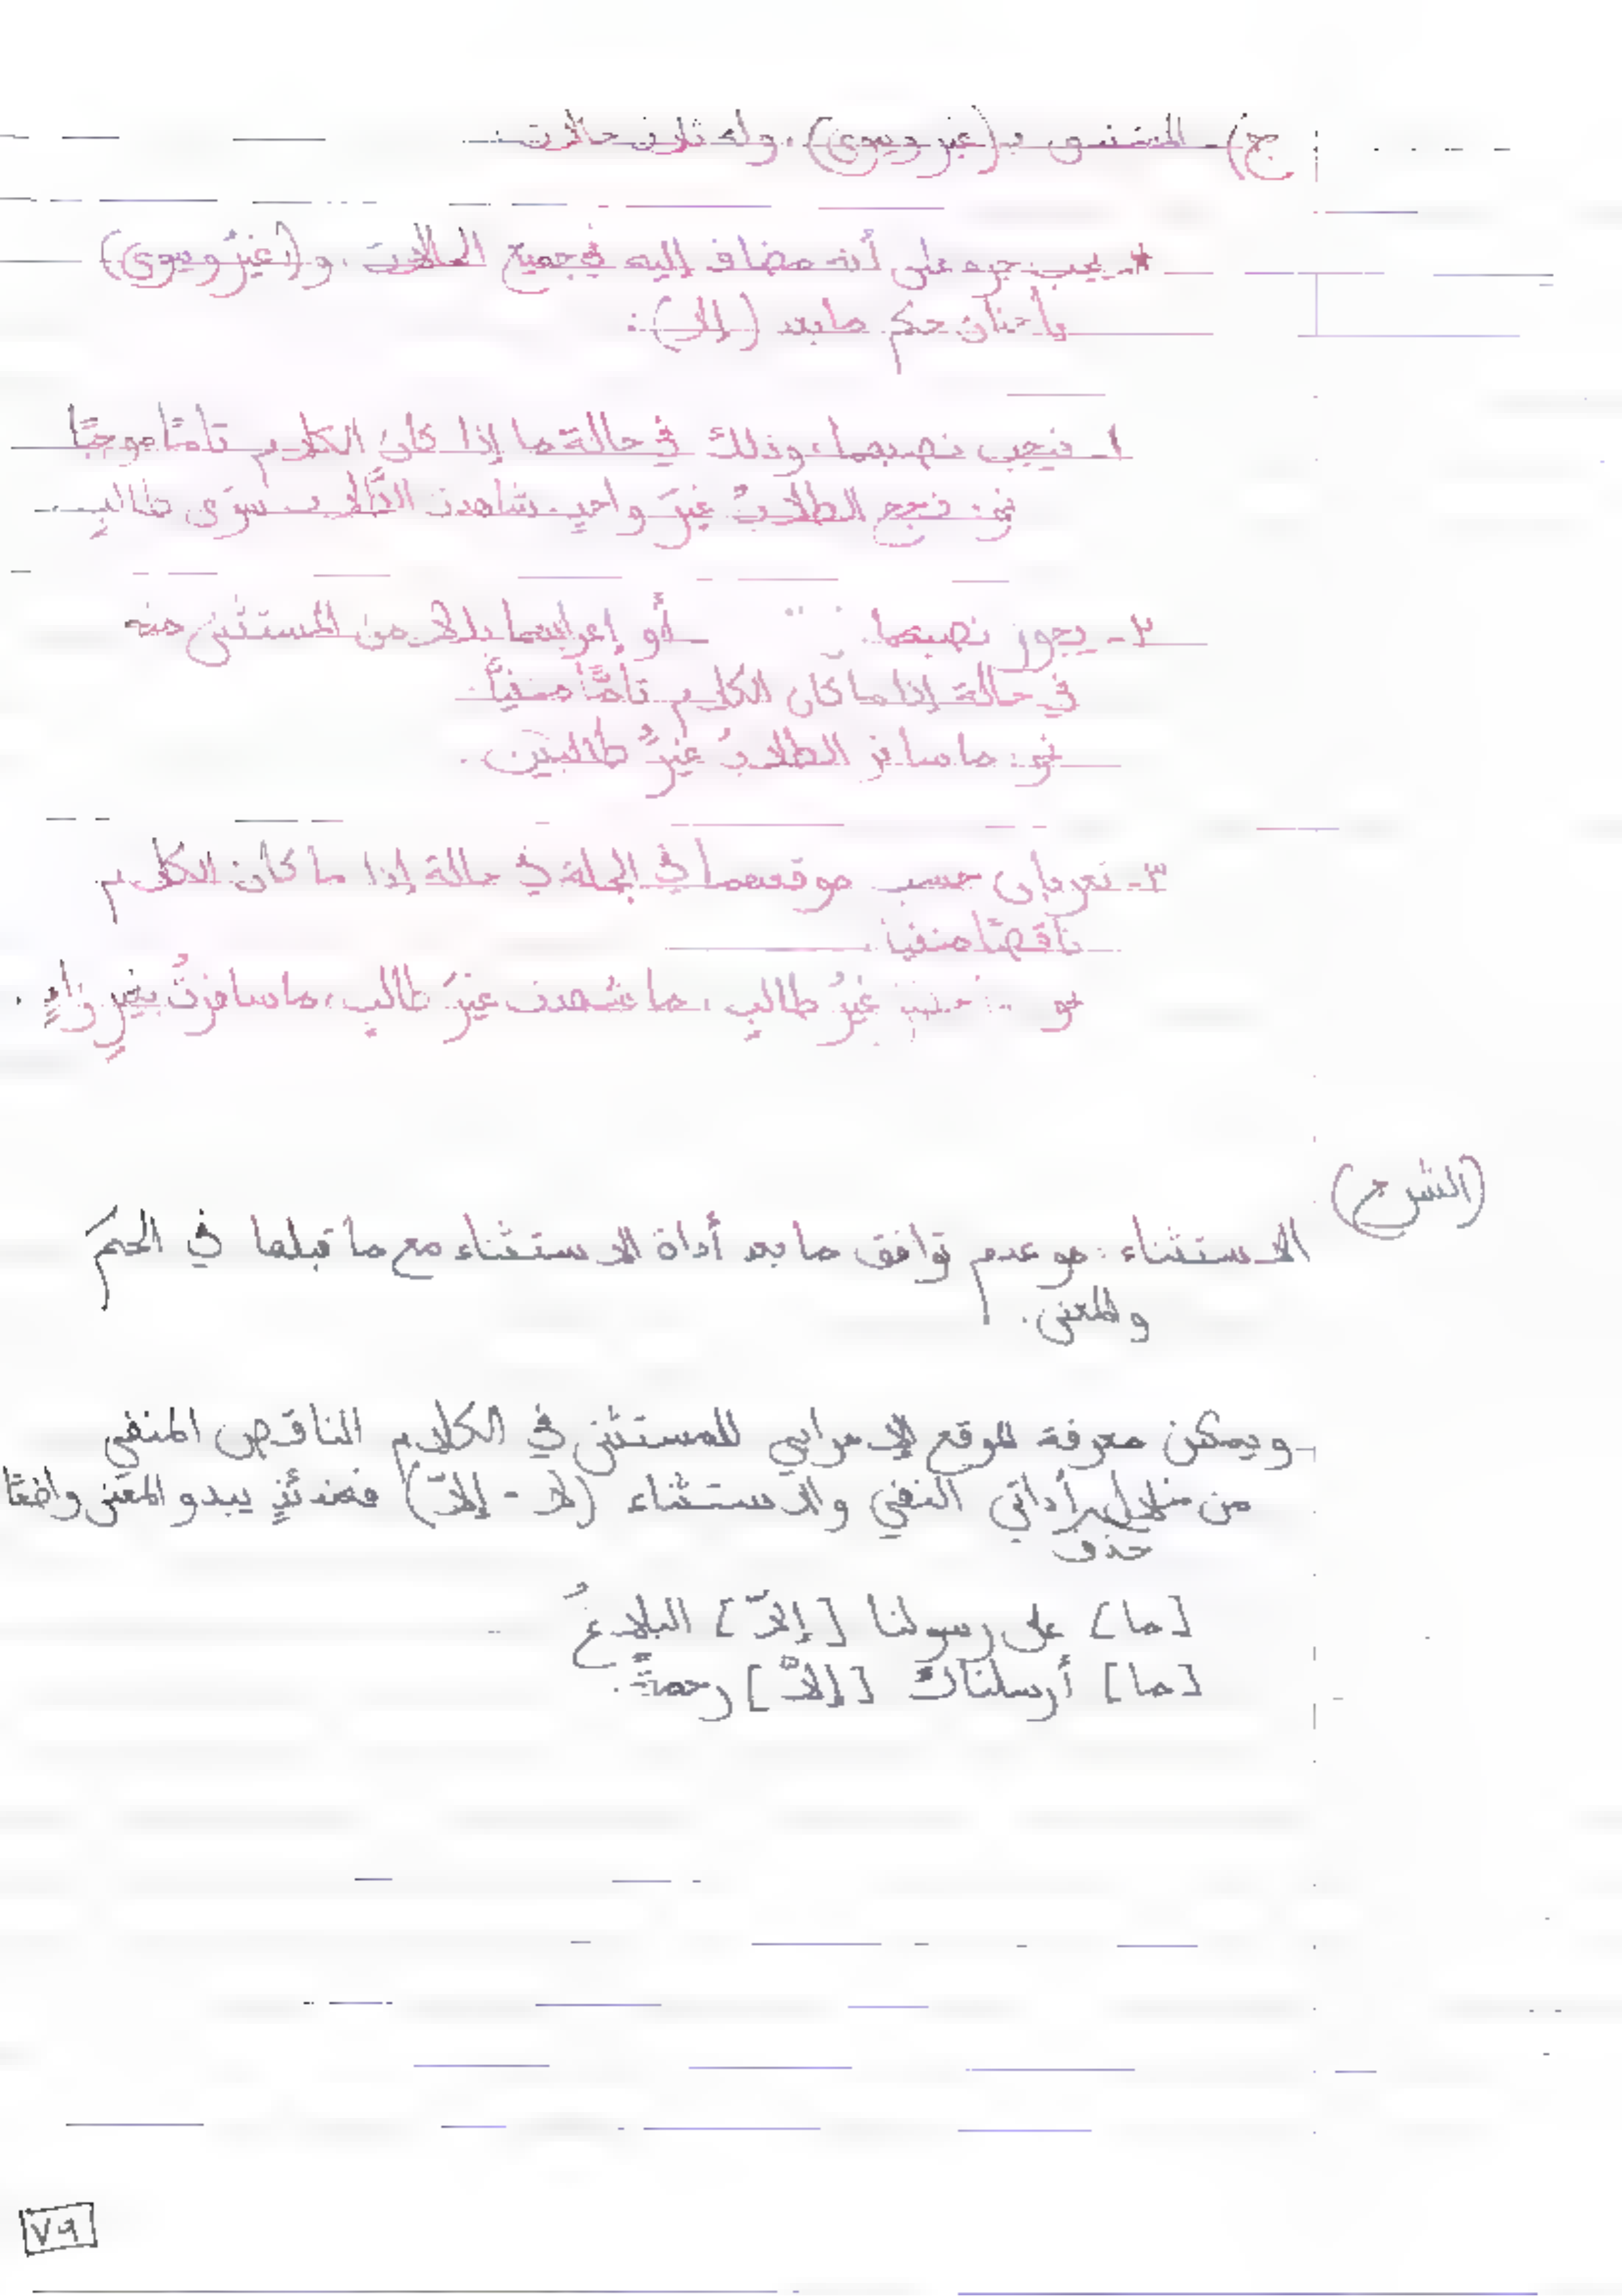 ج) - المستثنى بـ (غير وسوى)، وله ثلاث حالات:
* - يجب جره على أنه مضاف إليه في جميع الحالات، و(غيرُ وسوى)
يأخذان حكم ما بعد (إلا):
١- فيجب نصبهما، وذلك في حالة ما إذا كان الكلام تامًا موجبًا
نحو: نجح الطلابُ غيرَ واحدٍ. شاهدت الطلاب سوَى طالبٍ.
٢- يجوز نصبهما. أو إعرابهما بدلا من المستثنى منه
في حالة إذا ما كان الكلام تامًّا منفيًّا.
نحو: ما سافر الطلابُ غيرُ طالبين.
٣- تعربان حسب موقعهما في الجملة في حالة إذا ما كان الكلام
ناقصًا منفيا.
نحو غيرُ طالبٍ، ما شهدت غيرَ طالبٍ، ما سافرتُ بغيرِ
(الشرح)
الاستثناء: هو عدم توافق ما بعد أداة الاستثناء مع ما قبلها في الحكم
والمعنى.
- ويمكن معرفة الموقع الإعرابي للمستثنى في الكلام الناقص المنفي
من خلال أداتي النفي والاستثناء (لا - إلاّ) فعندئذٍ يبدو المعنى واضحًا
حذف
[ما] على رسولنا [إلاّ] البلاغُ
[ما] أرسلناك [إلاّ] رحمةً.
٧٩